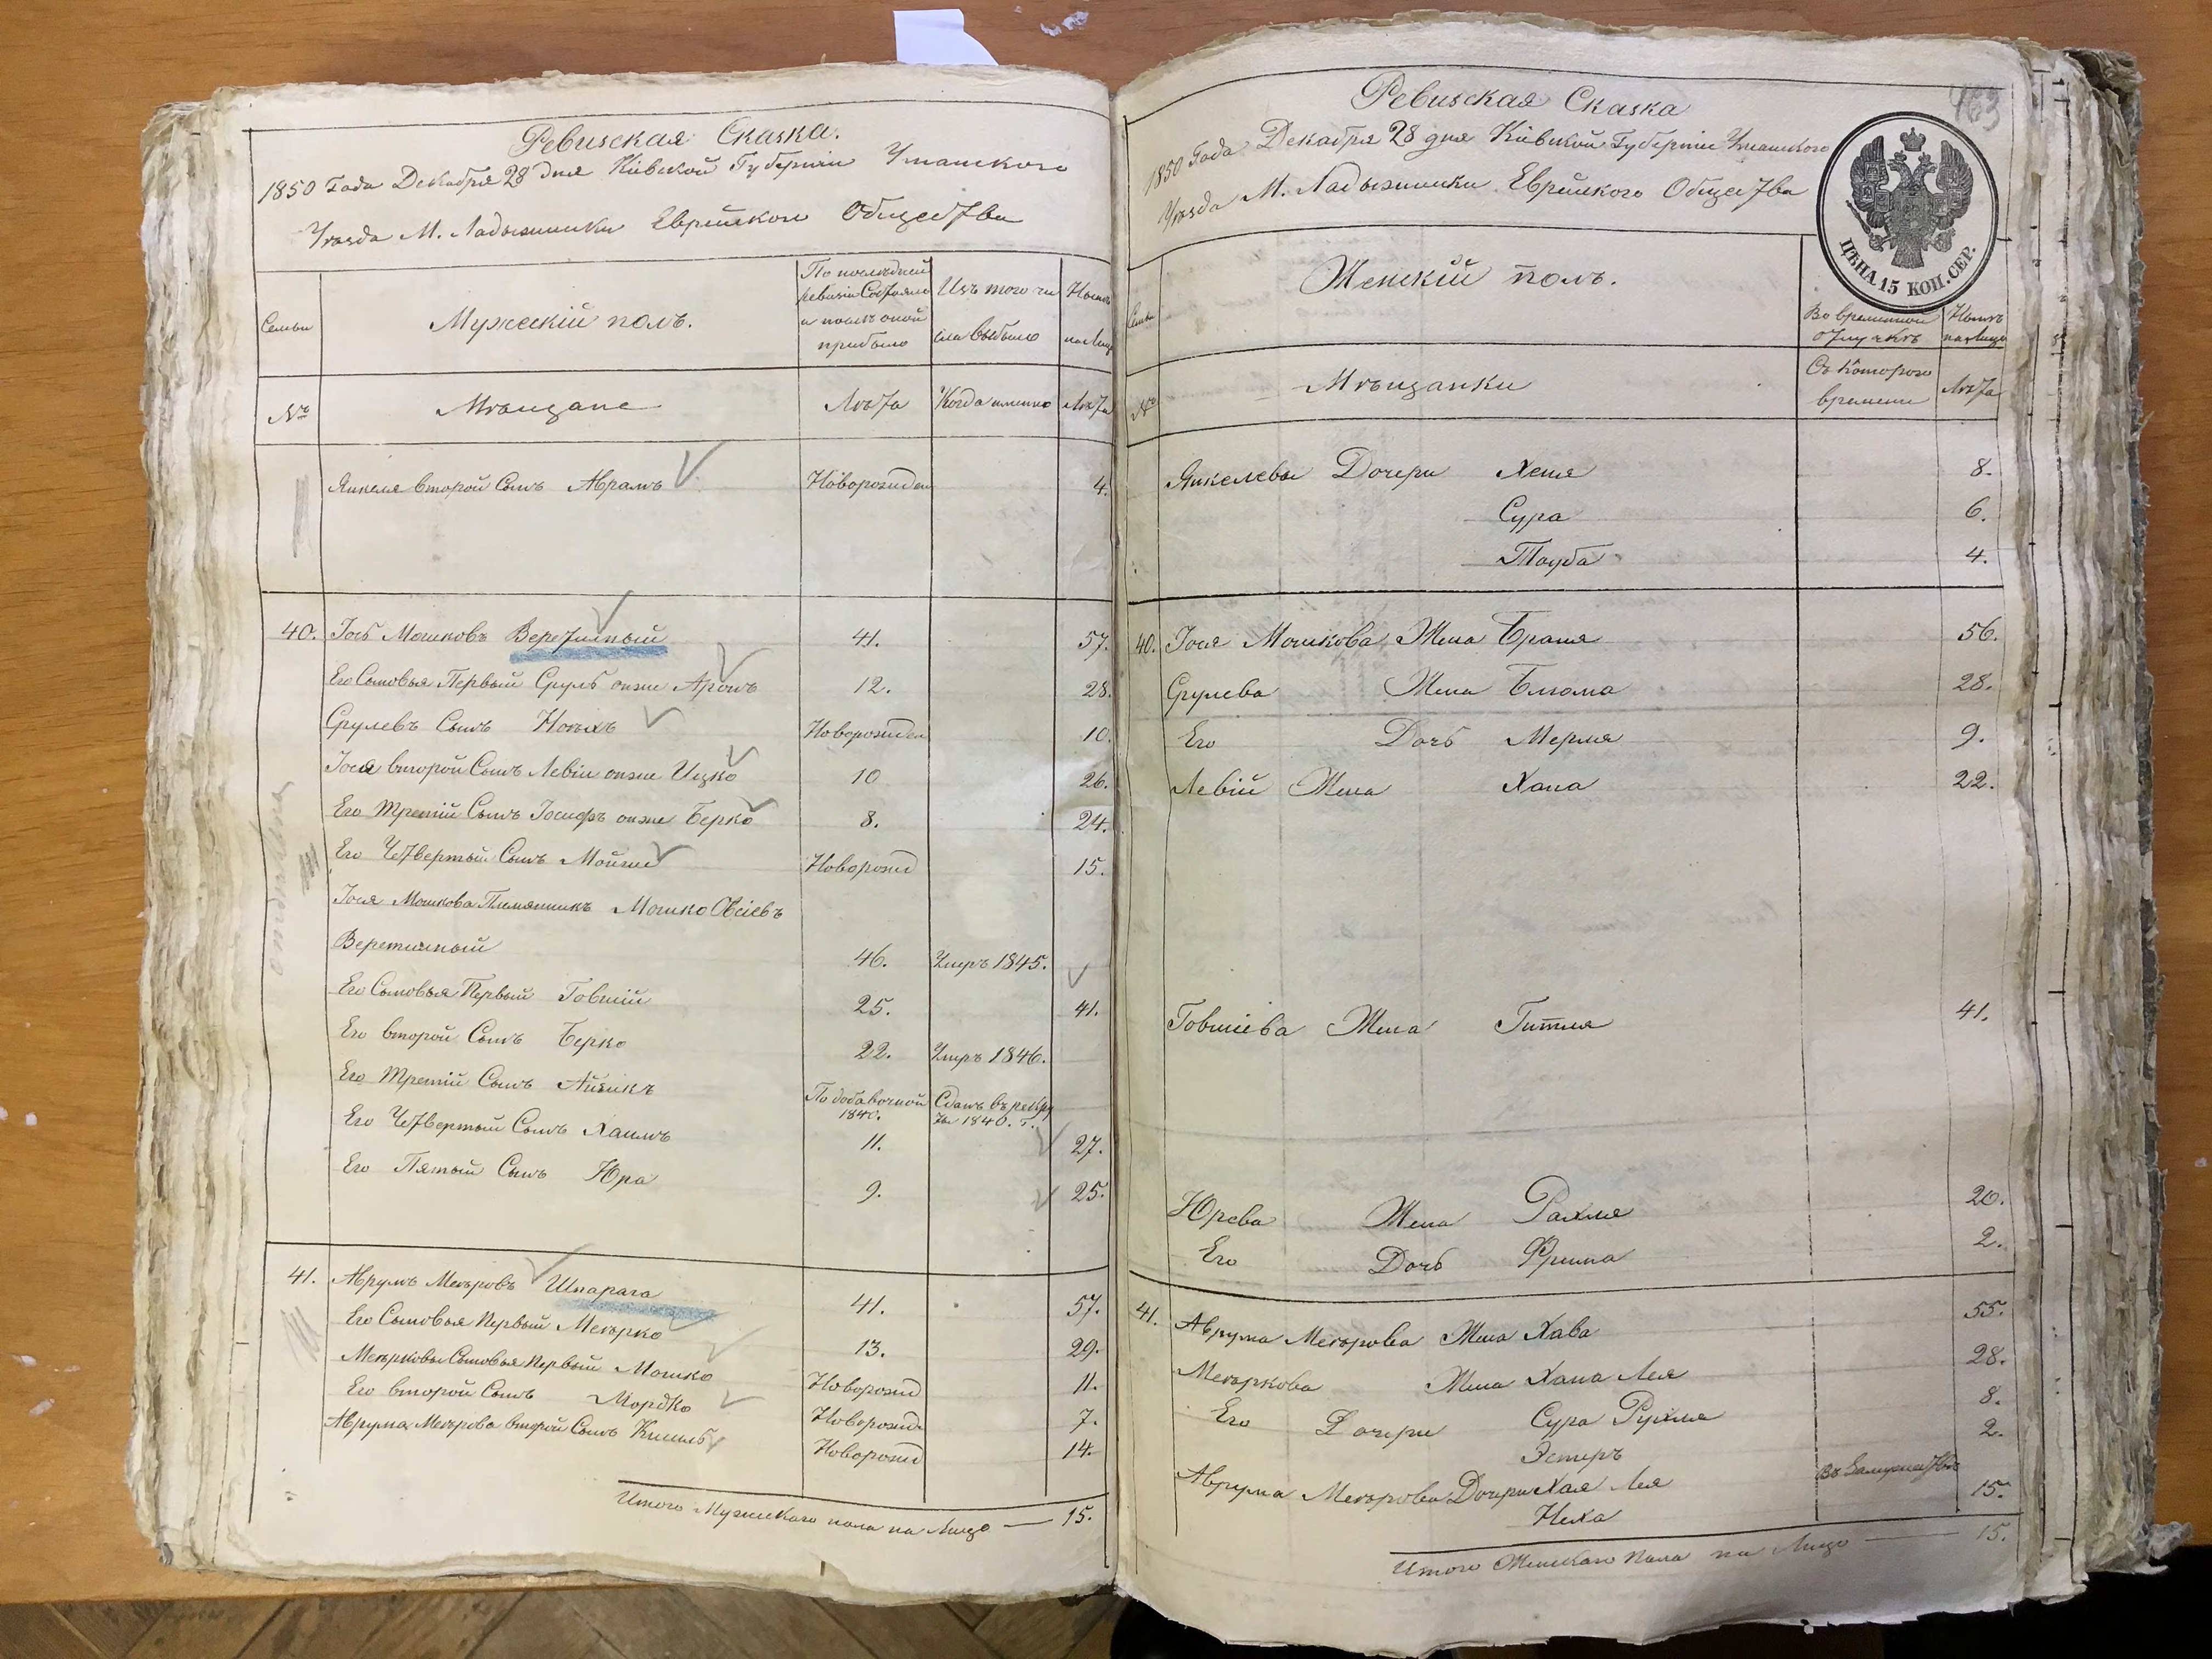 Ревизская Сказка.
1850 Года Декабря 28 дня Кіевской Губерніи Уманского
Уезда М. Ладыжинки Еврейского Общества
Семьи
Мужескій полъ.
По последней ревизіи Состояло и после оной прибыло
Изъ того числа выбыло
Ныне на Лицо
№
Мещане
Лета
Когда именно
Лета
Янкеля второй Сынъ Абрамъ Новорожден 4.
40. Іось Мошковъ Веретилный 41. 57.
Его Сыновья Первый Сруль онже Аронъ 12. 28.
Срулевъ Сынъ Новорожден 10.
Іося второй Сынъ Левій онже Ицко 10 26.
Его Третій Сынъ Іосифъ онже Берко 8. 24.
Его Четвертый Сынъ Мойше Новорожд 15.
Іося Мошкова Племянникъ Мошко
46. Умеръ 1845.
Его Сыновья Первый Говшій 25. 41.
Его второй Сынъ Берко 22. Умеръ 1846.
Его Третій Сынъ Айзикъ По добавочной 1840. Сданъ въ рекруты 1840. г.
Его Четвертый Сынъ Хаимъ 11. 27.
Его Пятый Сынъ Юра 9. 25.
41. Аврумъ Мееровъ Шпарага 41. 57.
Его Сыновья Первый Меерко 13. 29.
Меерковы Сыновья Первый Мошко Новорожд 11.
Его второй Сынъ Мордко Новорожд 7.
Аврума Меерова второй Сынъ Кисиль Новорожд 14.
Итого Мужескаго пола на Лицо — 15.
463
Ревизская Сказка
1850 Года Декабря 28 дня Кіевской Губерніи Уманского
Уезда М. Ладыжинки Еврейского Общества
ЦѢНА 15 КОП. СЕР.
Семьи
Женскій полъ.
Во временной отлучке
Ныне на Лицо
№
Мещанки
Съ Которого времени
Лета
Янкелевы Дочери Хеня 8.
Сура 6.
Тауба 4.
40. Іося Мошкова Жена Браня 56.
Срулева Жена Блюма 28.
Его Дочь Мерля 9.
Левій Жена Хана 22.
Говшіева Жена Гитля 41.
Юрева Жена Рахля 20.
Его Дочь Фрима 2.
41. Аврума Меерова Жена Хава 55.
Мееркова Жена Хана Лея 28.
Его Дочери Сура Рухля 8.
Эстеръ 2.
Аврума Меерова Дочери Хая Лея Въ Замужестве
Неха 15.
Итого Женскаго Пола на Лицо — 15.